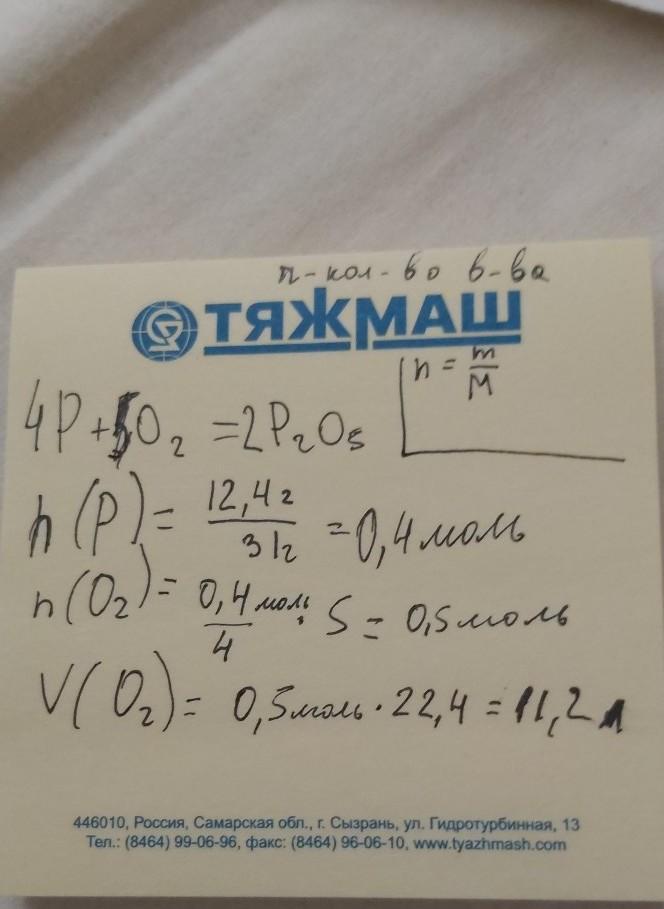 n - кол - во в - ва
ТЯЖМАШ
n = m/M
4P + 5O₂ = 2P₂O₅
n(P) = 12,4г/31г = 0,4 моль
n(O₂) = 0,4 моль/4 · 5 = 0,5 моль
V(O₂) = 0,5 моль · 22,4 = 11,2 л
446010, Россия, Самарская обл., г. Сызрань, ул. Гидротурбинная, 13
Тел.: (8464) 99-06-96, факс: (8464) 96-06-10, www.tyazhmash.com